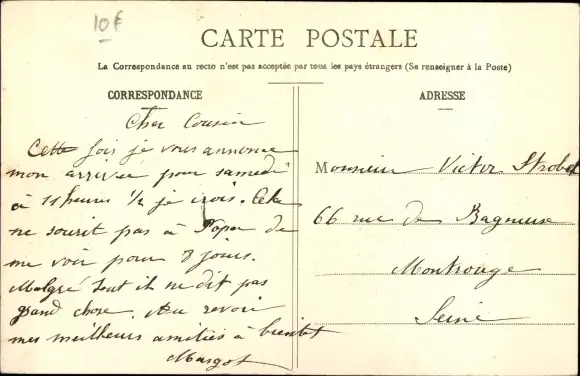 10€
CARTE POSTALE
La Correspondance au recto n'est pas acceptée par tous les pays étrangers (Se renseigner à la Poste)
CORRESPONDANCE
Cher Cousin
Cette fois je vous annonce
mon arrivée pour samedi
à 11 heures 1/2 je crois. Cela
ne sourit pas à Papa de
me voir pour 8 jours.
Malgré tout il ne dit pas
grand chose. Au revoir
mes meilleurs amitiés à bientôt
Margot
ADRESSE
Monsieur Victor Strobel
66 rue de Bagneux
Montrouge
Seine